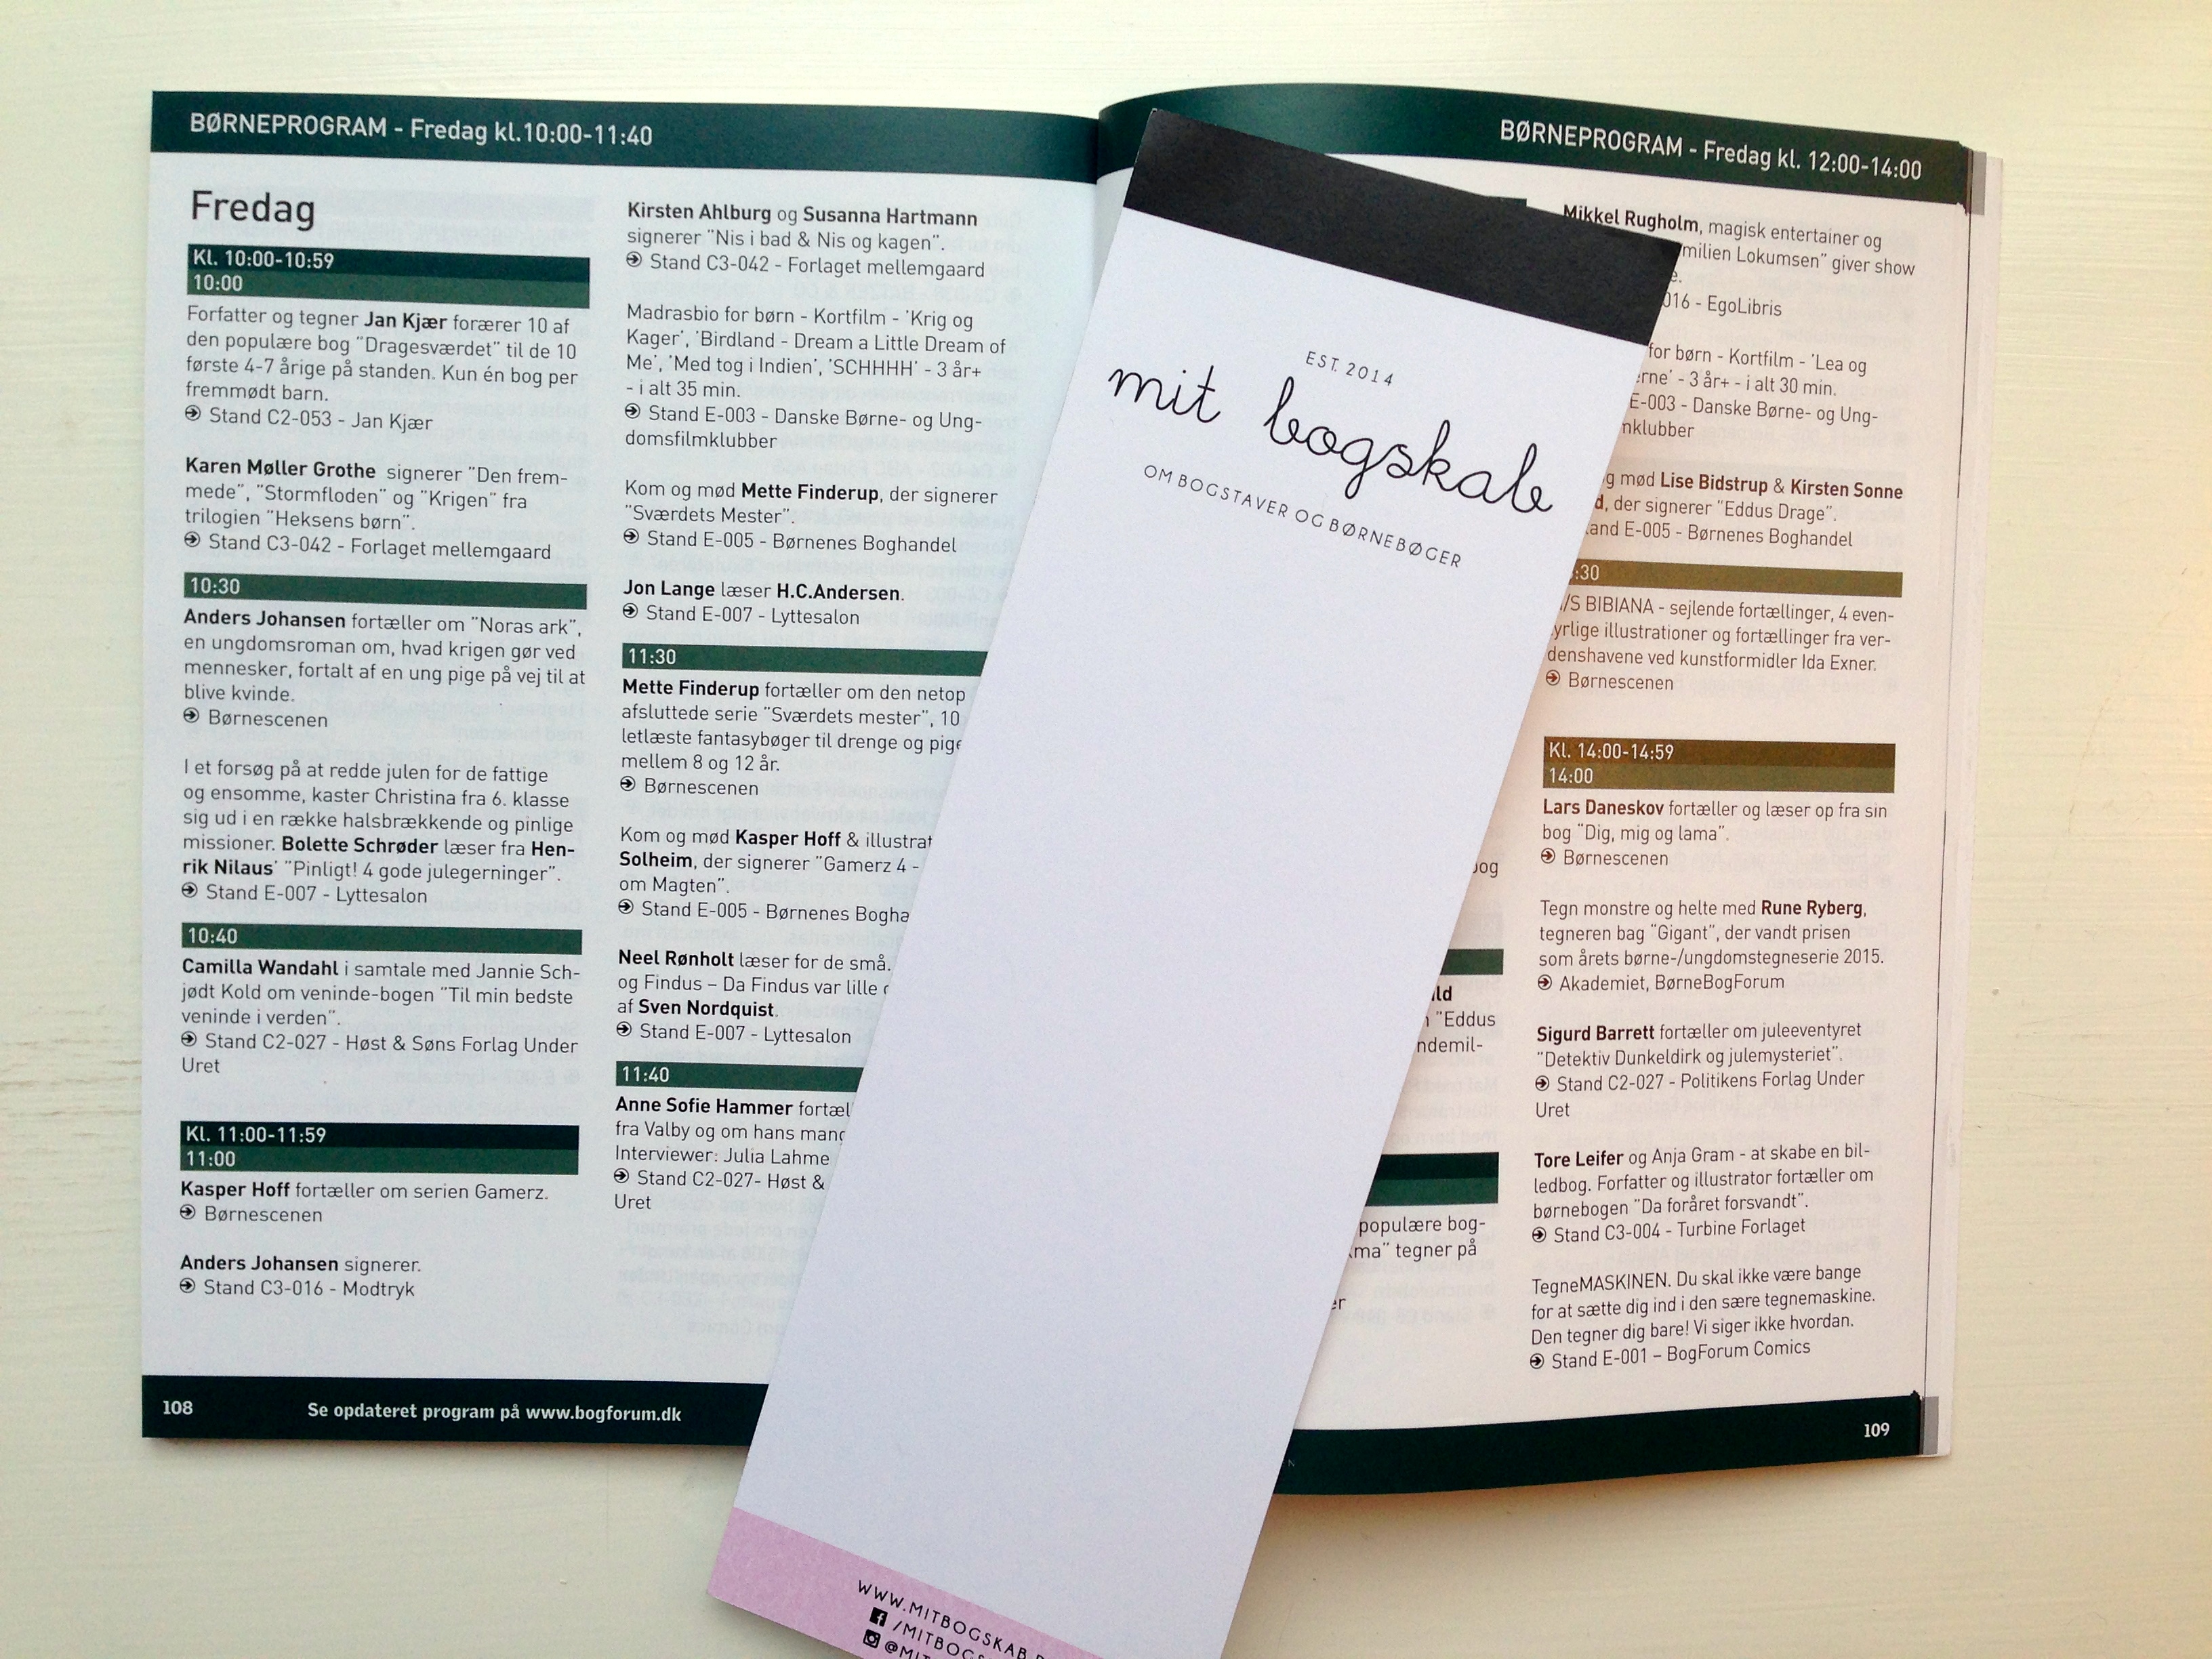 BØRNEPROGRAM - Fredag kl.10:00-11:40
Fredag
Kl. 10:00-10:59
10:00
Forfatter og tegner Jan Kjær forærer 10 af
den populære bog "Dragesværdet" til de 10
første 4-7 årige på standen. Kun én bog per
fremmødt barn.
Stand C2-053 - Jan Kjær
Karen Møller Grothe signerer "Den frem-
mede", "Stormfloden" og "Krigen" fra
trilogien "Heksens børn".
Stand C3-042 - Forlaget mellemgaard
10:30
Anders Johansen fortæller om "Noras ark",
en ungdomsroman om, hvad krigen gør ved
mennesker, fortalt af en ung pige på vej til at
blive kvinde.
Børnescenen
I et forsøg på at redde julen for de fattige
og ensomme, kaster Christina fra 6. klasse
sig ud i en række halsbrækkende og pinlige
missioner. Bolette Schrøder læser fra Hen-
rik Nilaus' "Pinligt! 4 gode julegerninger".
Stand E-007 - Lyttesalon
10:40
Camilla Wandahl i samtale med Jannie Sch-
jødt Kold om veninde-bogen "Til min bedste
veninde i verden".
Stand C2-027 - Høst & Søns Forlag Under
Uret
Kl. 11:00-11:59
11:00
Kasper Hoff fortæller om serien Gamerz.
Børnescenen
Anders Johansen signerer.
Stand C3-016 - Modtryk
Kirsten Ahlburg og Susanna Hartmann
signerer "Nis i bad & Nis og kagen".
Stand C3-042 - Forlaget mellemgaard
Madrasbio for børn - Kortfilm - 'Krig og
Kager', 'Birdland - Dream a Little Dream of
Me', 'Med tog i Indien', 'SCHHHH' - 3 år+
- i alt 35 min.
Stand E-003 - Danske Børne- og Ung-
domsfilmklubber
Kom og mød Mette Finderup, der signerer
"Sværdets Mester".
Stand E-005 - Børnenes Boghandel
Jon Lange læser H.C.Andersen.
Stand E-007 - Lyttesalon
11:30
Mette Finderup fortæller om den netop
afsluttede serie "Sværdets mester", 10
letlæste fantasybøger til drenge og
mellem 8 og 12 år.
Børnescenen
Kom og mød Kasper Hoff &
Solheim, der signerer "Gamerz 4 -
om Magten".
Stand E-005 - Børnenes
Neel Rønholt læser for de små.
og Findus – Da Findus var lille
af Sven Nordquist.
Stand E-007 - Lyttesalon
11:40
Anne Sofie Hammer
fra Valby og om hans
Interviewer: Julia Lahme
Stand C2-027- Høst &
Uret
108
Se opdateret program på www.bogforum.dk
EST. 2014
mit bogskab
OM BOGSTAVER OG BØRNEBØGER
WWW.MITBOGSKAB
BØRNEPROGRAM - Fredag kl. 12:00-14:00
"Eddus
populære bog-
tegner på
Mikkel Rugholm, magisk entertainer og
Lokumsen" giver show
- EgoLibris
for børn - Kortfilm - 'Lea og
- 3 år+ - i alt 30 min.
E-003 - Danske Børne- og Ung-
mød Lise Bidstrup & Kirsten Sonne
der signerer "Eddus Drage".
E-005 - Børnenes Boghandel
:30
BIBIANA - sejlende fortællinger, 4 even-
tyrlige illustrationer og fortællinger fra ver-
denshavene ved kunstformidler Ida Exner.
Børnescenen
Kl. 14:00-14:59
14:00
Lars Daneskov fortæller og læser op fra sin
bog "Dig, mig og lama".
Børnescenen
Tegn monstre og helte med Rune Ryberg,
tegneren bag "Gigant", der vandt prisen
som årets børne-/ungdomstegneserie 2015.
Akademiet, BørneBogForum
Sigurd Barrett fortæller om juleeventyret
"Detektiv Dunkeldirk og julemysteriet".
Stand C2-027 - Politikens Forlag Under
Uret
Tore Leifer og Anja Gram - at skabe en bil-
ledbog. Forfatter og illustrator fortæller om
børnebogen "Da foråret forsvandt".
Stand C3-004 - Turbine Forlaget
TegneMASKINEN. Du skal ikke være bange
for at sætte dig ind i den sære tegnemaskine.
Den tegner dig bare! Vi siger ikke hvordan.
Stand E-001 – BogForum Comics
109